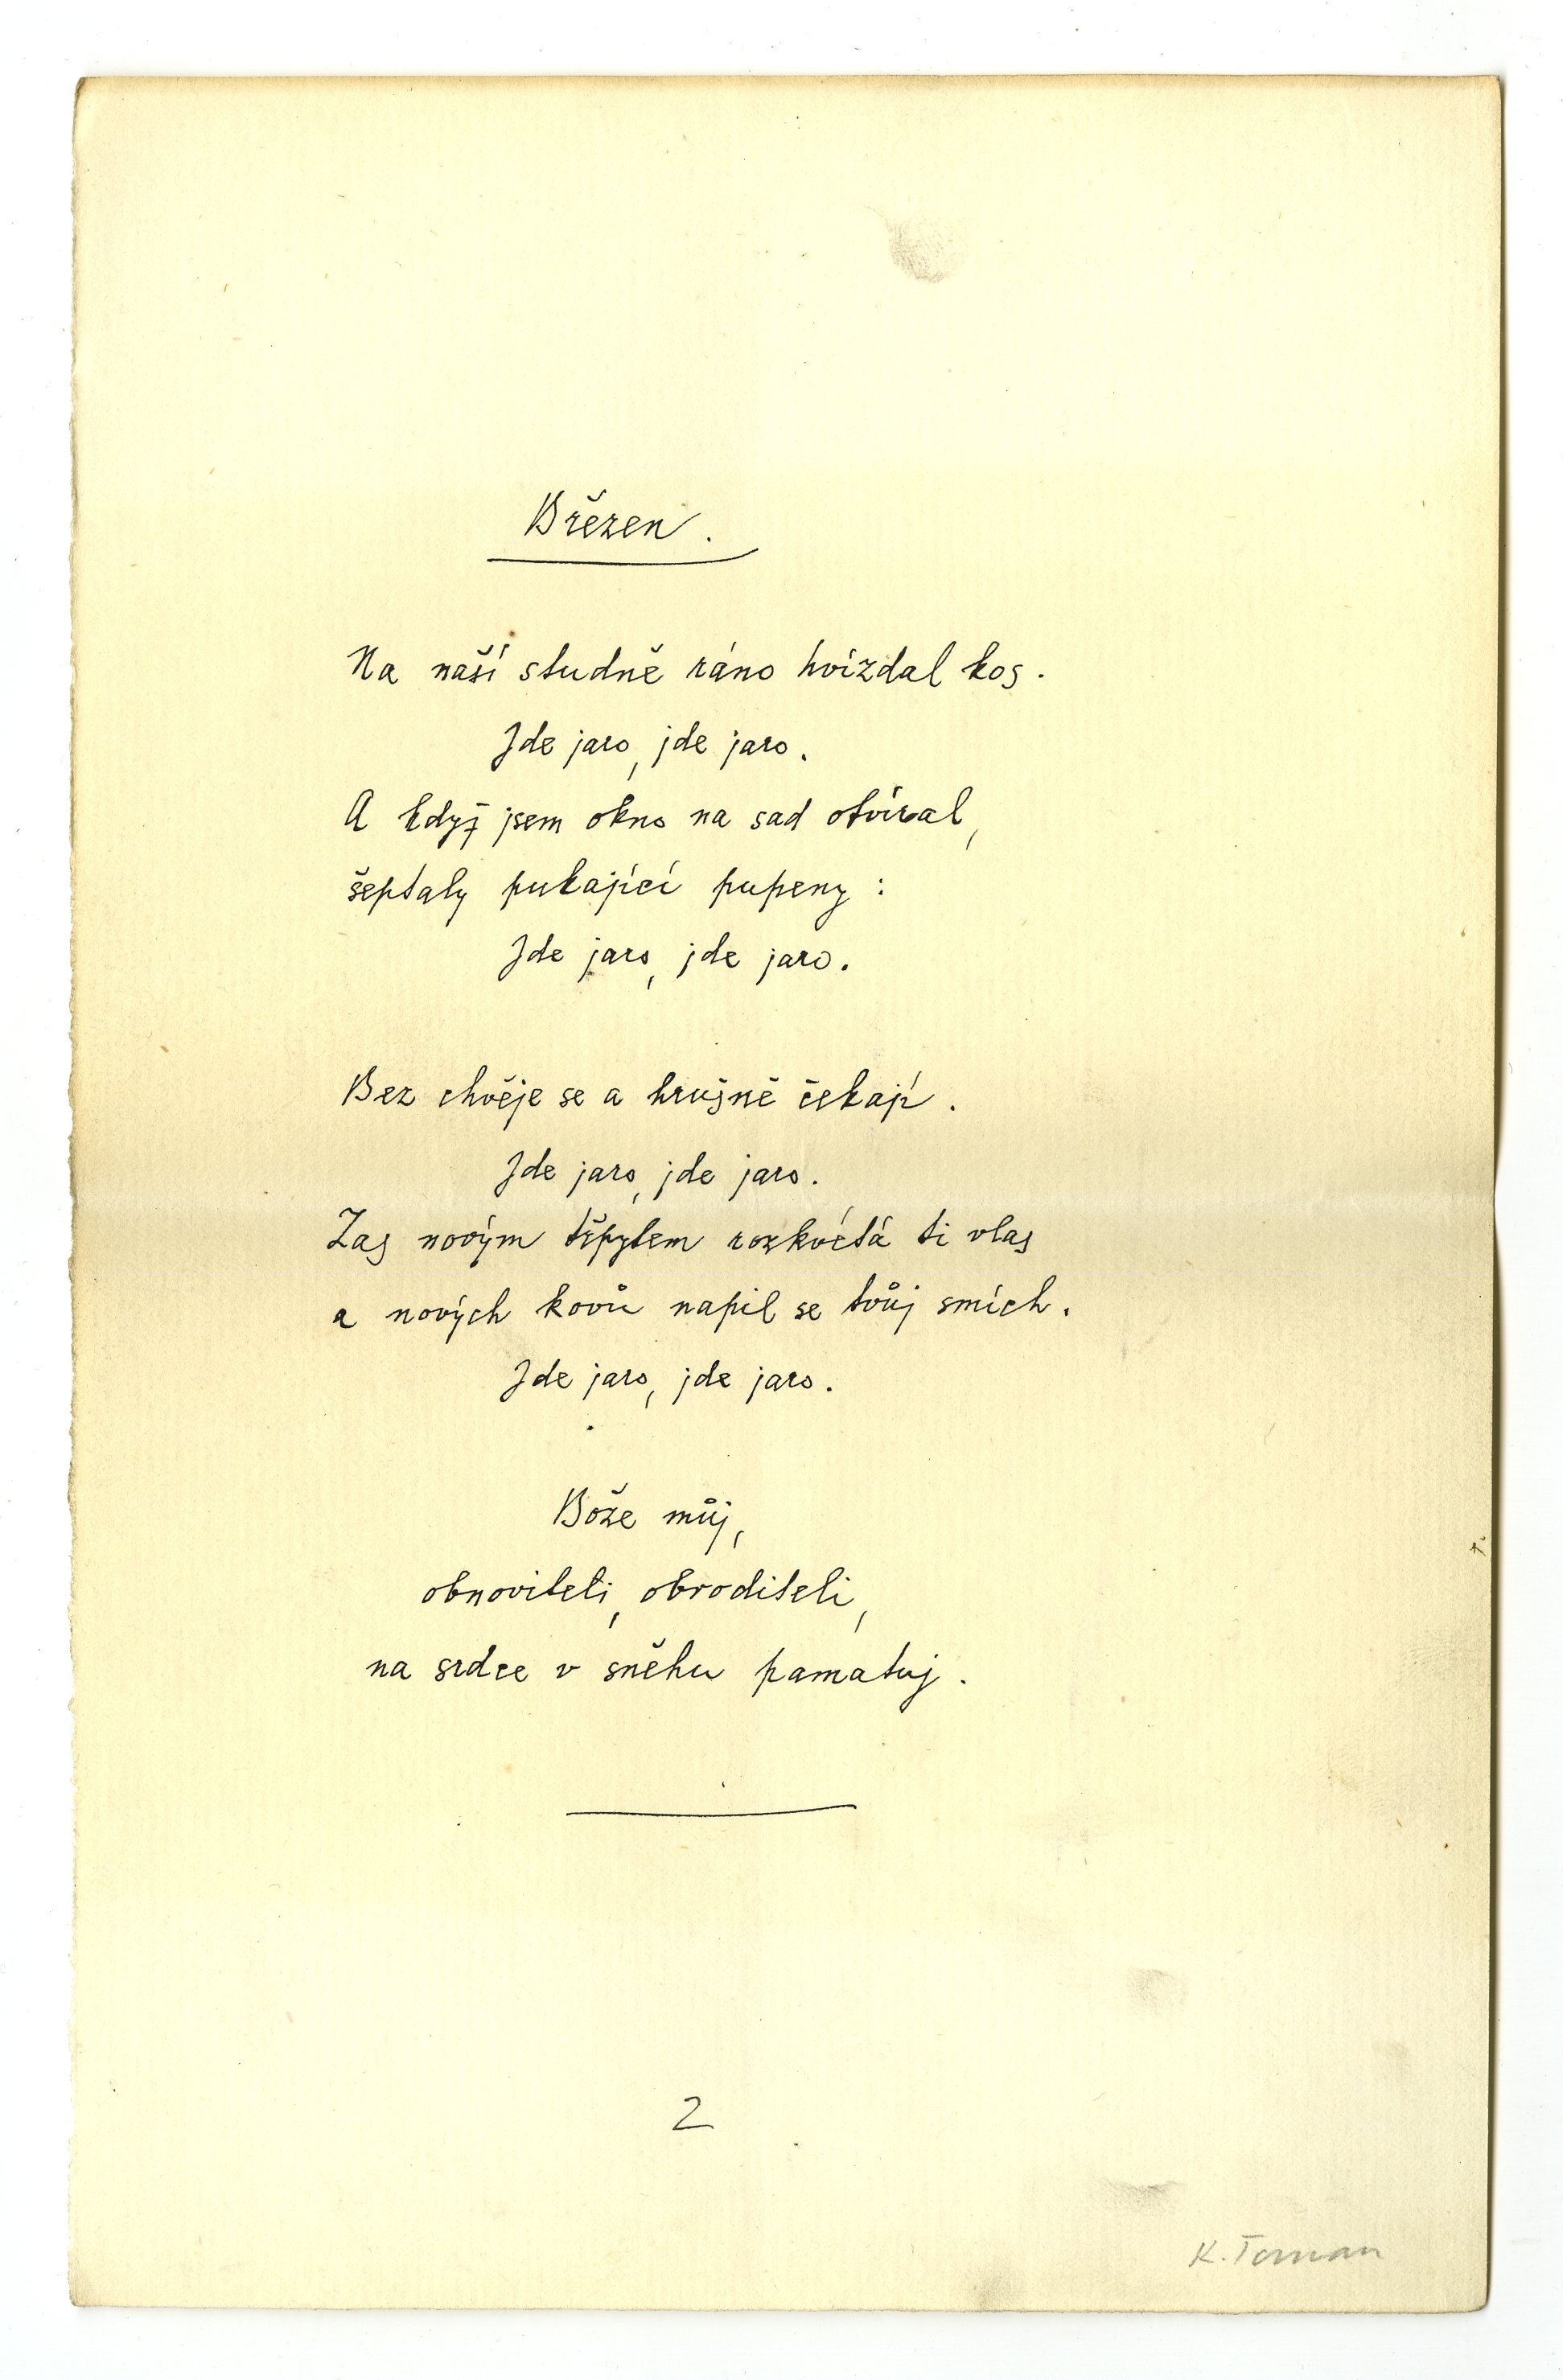 Březen.
Na naší studně ráno hvízdal kos.
Jde jaro, jde jaro.
A když jsem okno na sad otvíral,
šeptaly pukající pupeny:
Jde jaro, jde jaro.
Bez chvěje se a hrušně čekají.
Jde jaro, jde jaro.
Zas novým třpytem rozkvétá ti vlas
a nových kovů napil se tvůj smích.
Jde jaro, jde jaro.
Bože můj,
obnoviteli, obroditeli,
na srdce v sněhu pamatuj.
2
K. Toman